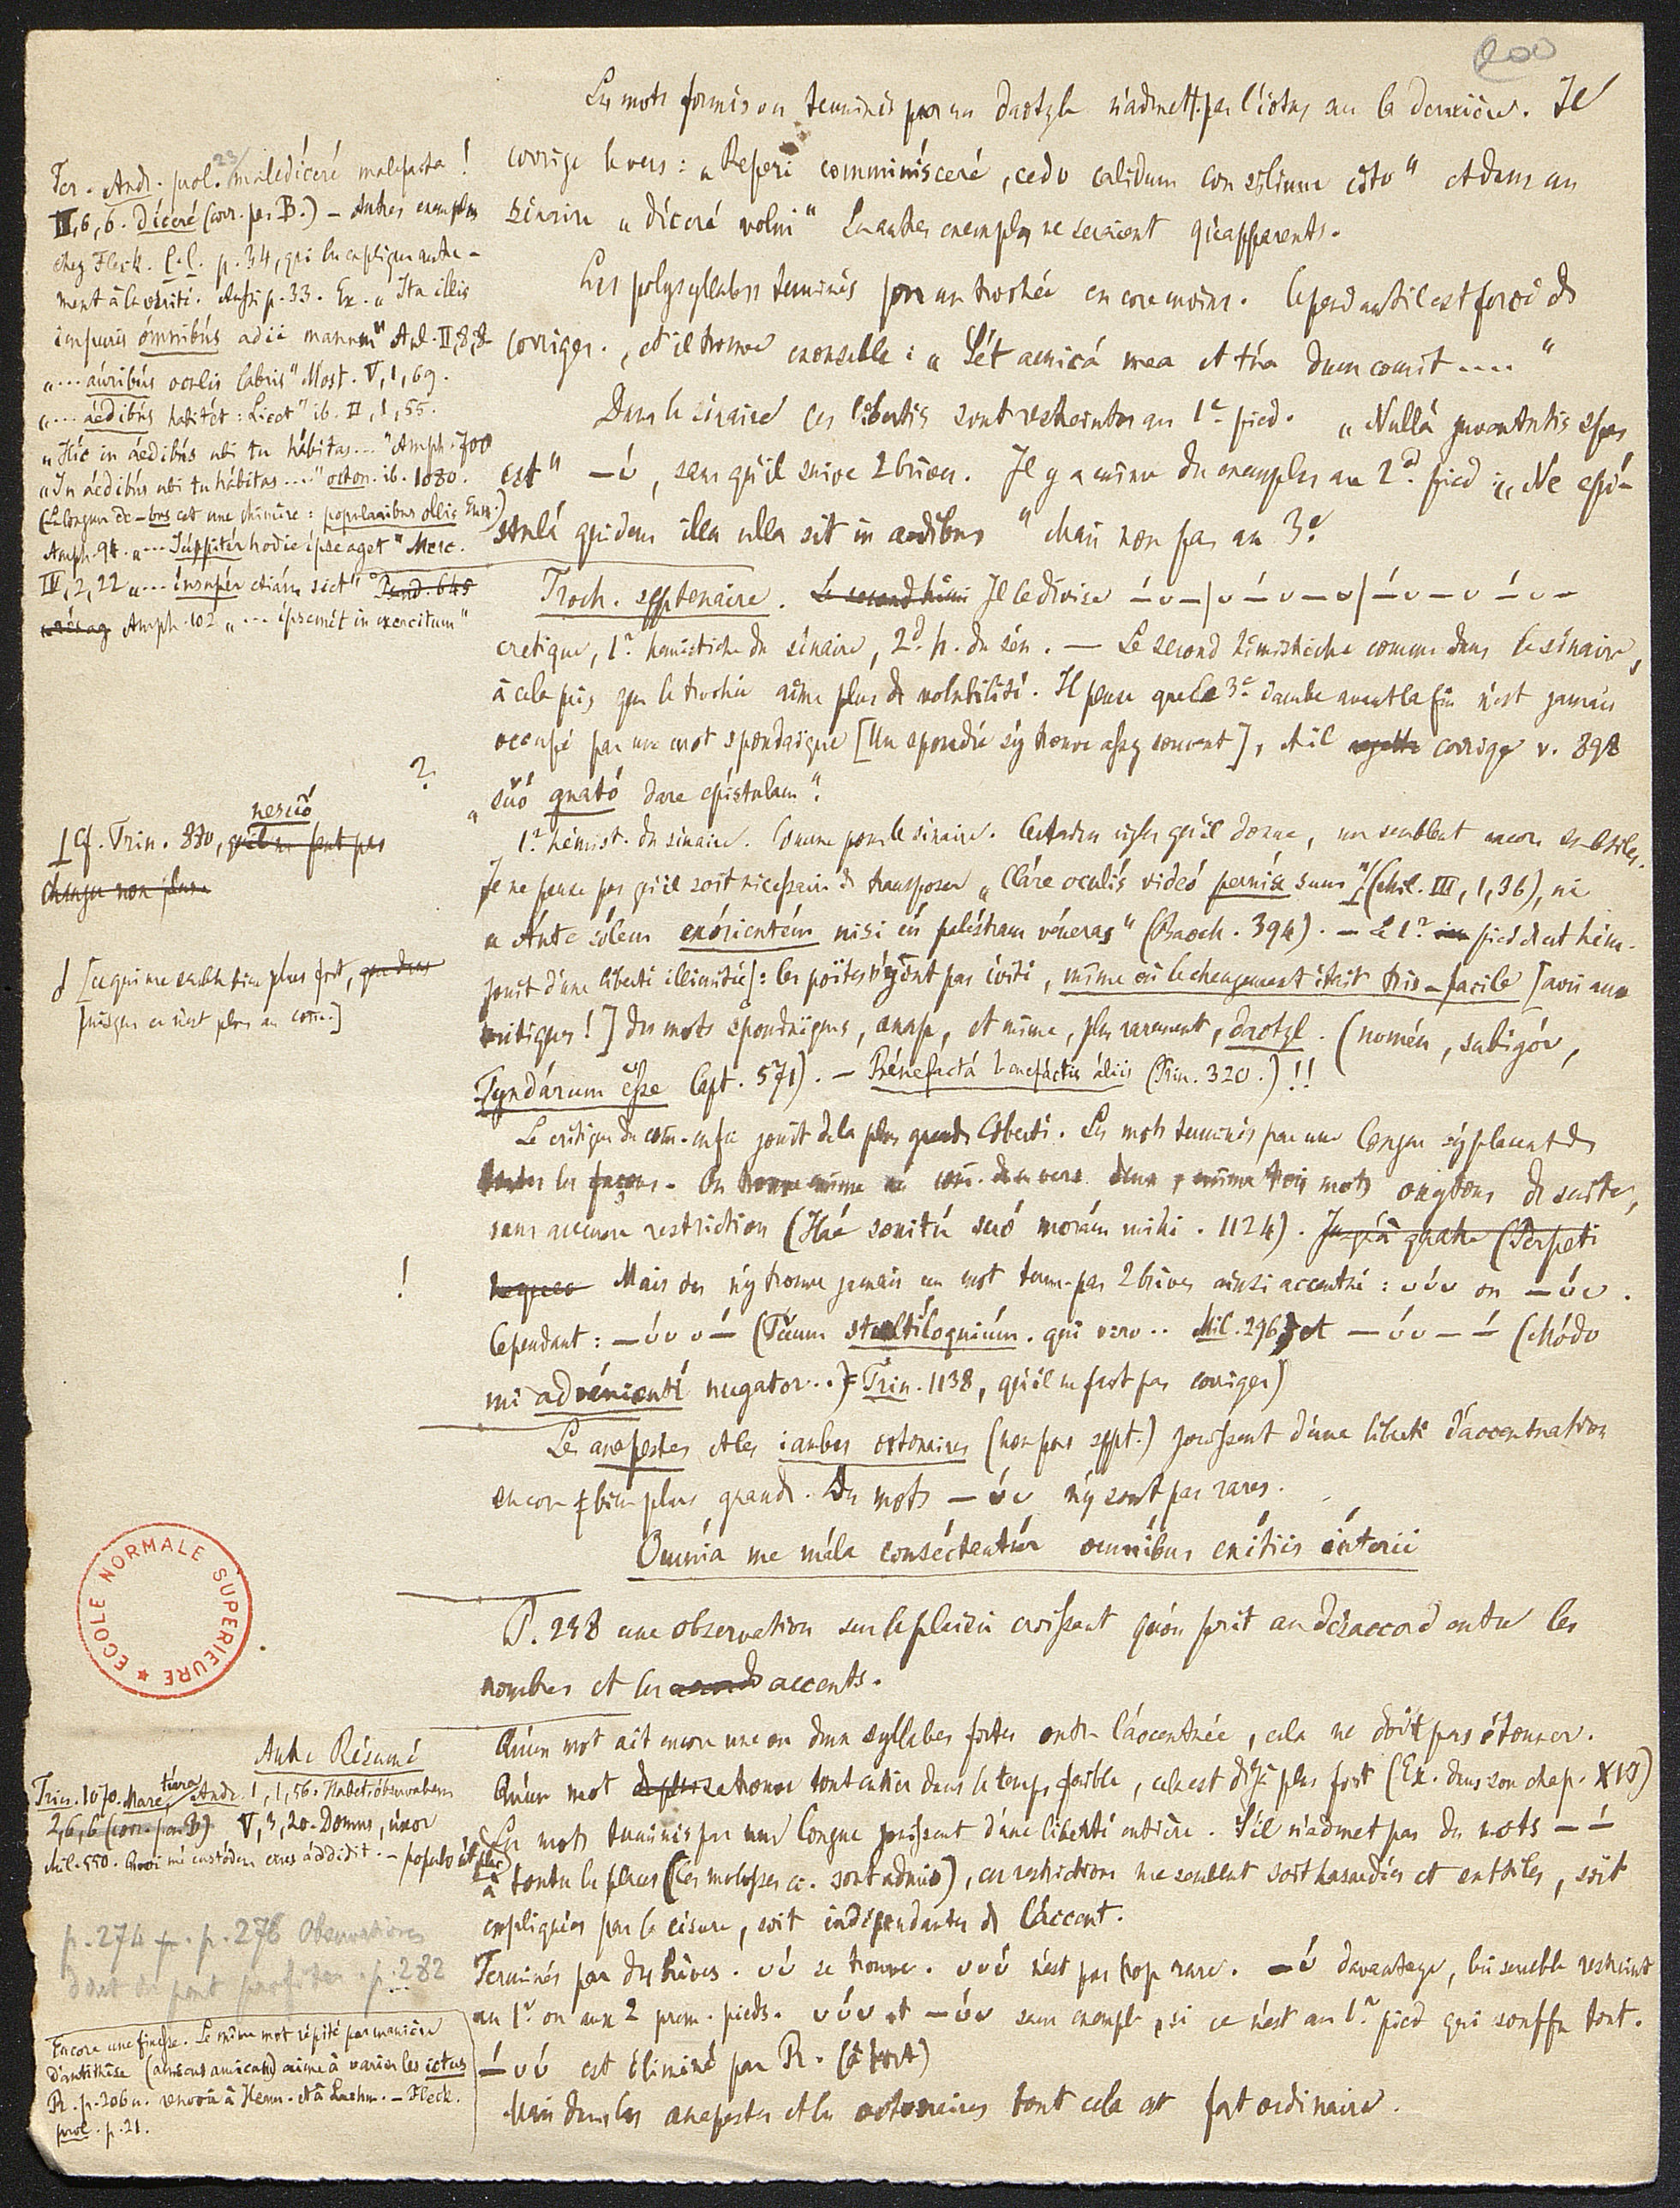 200
Les mots formés ou terminés par un dactyle n'admett. pas l'ictus sur la dernière. Il
corrige le vers : „Reperi comminísceré, cedo calidum consilium cito" et dans un
sénaire „díceré volui" Les autres exemples ne seraient qu'apparents.
Les polysyllabes terminés par un trochée encore moins. Cependant il est forcé de
corriger., et il trouve : „Sét amicá mea et túa dum comit ...."
Dans le sénaire ces libertés sont restreintes au 1er pied. „Nullá juventutis spes
est" –, sans qu'il suive 2 brèves. Il y a même des exemples au 2d pied : „Ne epí-
stulá quidem illa ulla sit in aedibus" Mais non pas au 3e
Troch. septenaire. Le second hémi Il le divise – ᴗ – | ᴗ – ᴗ – ᴗ | – ᴗ – ᴗ – ᴗ –
cretique, 1er hemistiche du sénaire, 2d h. du sén. — Le second hémistiche comme dans le sénaire,
à cela près que le trochée aime plus de volubilité. Il pense que le 3e iambe avant la fin n'est jamais
occupé par un mot spondaïque [Un spondée s'y trouve assez souvent], et il rejette corrige v. 898
„súó gnató dare epístulam".
1er hémist. du sénaire. Comme pour le sénaire. Certaines règles qu'il donne, me semblent encore
Je ne pense pas qu'il soit nécessaire de transposer „Cláre oculís videó perníx sum" (Mil. III, 1, 36), ni
„Ánte sólem exórientém nisi in paléstram véneras" (Bacch. 394). — Le 1er pied de cet hém.
jouit d'une liberté illimitée : les poëtes n'y ont pas évité, même où le changement était très-facile [avis aux
critiques !] des mots spondaïques, anap, et même, plus rarement, dactyl. (nomén, subigór,
Tyndárum ésse Capt. 571). — Bénefactá benefáctis áliis (Trin. 320.) !!
Le crétique du com. enfin jouit de la plus grande liberté. Les mots terminés par une longue s'y placent de
toutes les façons. On trouve même au com. du vers deux, même trois mots oxytons de suite,
sans aucune restriction (Haé sonitú suó morám mihi. 1124). Jusqu'à quatre (Perpeti
nequeo Mais on n'y trouve jamais un mot term. par 2 brèves ainsi accentué : ᴗᴗ́ᴗ ou – ᴗ́ᴗ.
Cependant : – ᴗ́ᴗ ᴗ – (Túum stultíloquiúm. qui vero .. Mil. 296) et – ᴗ́ᴗ – – (Módo
mi advénientí nugator ..) Trin. 1138, qu'il ne faut pas corriger)
Les anapestes et les iambes octonaires (non pas sept.) jouissent d'une liberté d'accentuation
encore bien plus grande. Des mots – ᴗ́ᴗ n'y sont pas rares.
Omnía me mála conséctantúr omníbus exítiis ínterii
P. 238 une observation sur le plaisir croissant qu'on prit au désaccord entre les
nombres et les accents.
Qu'un mot ait encore une ou deux syllabes fortes outre l'accentuée, cela ne doit pas étonner.
Qu'un mot se trouve tout entier dans le temps faible, cela est déjà plus fort (Ex. dans son chap. XVI)
Les mots terminés par une longue jouissent d'une liberté entière. S'il n'admet pas des mots – –́
à toutes les places (les molosses ci. sont admis), ces restrictions me semblent soit hasardées et subtiles, soit
expliquées par la césure, soit indépendantes de l'accent.
Terminés par des brèves. ᴗᴗ́ se trouve. ᴗᴗᴗ́ n'est pas trop rare. – ᴗ́ davantage, lui semble restreint
au 1er ou aux 2 prem. pieds. ᴗᴗ́ᴗ et – ᴗ́ᴗ sans exemple, si ce n'est au 1er pied qui souffre tout.
–́ ᴗᴗ́ est éliminé par R. (à tort)
Mais dans les anapestes et les octonaires tout cela est fort ordinaire.
Ter. Andr. prol. 23/ malédíceré malefacta !
II, 6, 6. Díceré (corr. par B.) — Autres exemples
chez Fleck. l.l. p. 34, qui les explique autre-
ment à la vérité. Aussi p. 33. Ex. „Ita illis
impuris ómnibús adii manum" Aul. II, 8, 8
„... áuribús oculis labris" Most. V, 1, 69.
„... áedibús habitét : Licet" ib. II, 1, 55.
„Híc in áedibús ubi tu hábitas..." Amph. 700
„In áedibús ubi tu hábitas ...." octon. ib. 1080.
(La longue de -bus est une chimère : popularibus ollis Enn.)
Amph. 94. „... Júppitér hodie ípse aget" Merc.
IV, 2, 22 „... ínsupér etiám siet" Pseud. 645
Amph. 102 „... ípsemét in exercitum"
?
nesció
Cf. Trin. 880, qu'il ne faut pas
changer non plus
[ce qui me semble bien plus fort,
puisque ce n'est plus au com.]
!
ECOLE NORMALE SUPERIEURE
Autre Résumé
Trin. 1070. Mare, térra, Andr. 1, 1, 56. Habet : observabam
2, 6, 6 (corr. par B) V, 3, 20. Domus, úxor
Mil. 550. custódem áddidit. — populó út
p. 274 p. 276 Observations
dont on peut profiter. p. 282
Encore une finesse. Le même mot répété par manière
d'antithèse (amicus amicam) aime à varier les ictus
R. p. 206 n. renvoie à Herm. et à Lachm. — Fleck.
prol. p. 21.